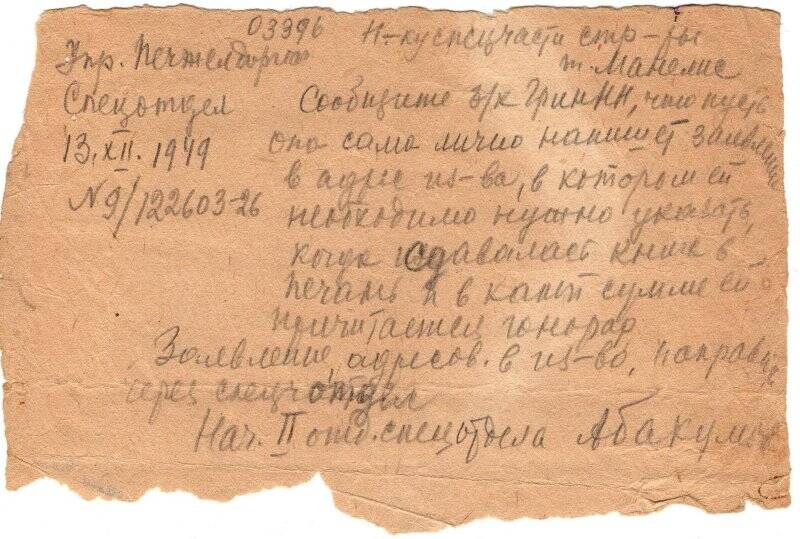 03396 Н-ку спецчасти стр-ры
т. Манелис
Упр. Печжелдорлаг
Спецотдел
13.XII.1949
N 9/122603-26
Сообщите з/к Грин НН, что пусть
она сама лично напишет заявление
в адрес из-ва, в котором ей
необходимо нужно указать,
когда сдавалась книга в
печать и в какой сумме ей
причитается гонорар
Заявление, адресов. в из-во, направить
через спецотдел
Нач. II отд. спецотдела Абакумов